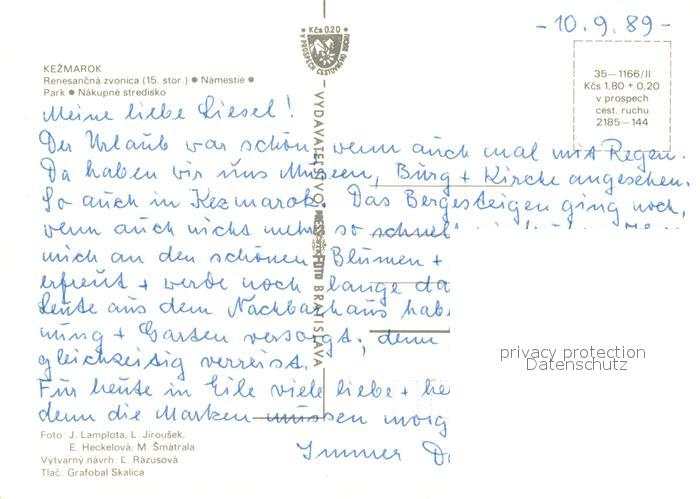 -10.9.89-
Kčs 0.20
V PROSPECH CESTOVNÉHO RUCHU
35—1166/II
Kčs 1.80 + 0,20
v prospech
cest. ruchu
2185—144
KEŽMAROK
Renesančná zvonica (15. stor.) ● Námestie ●
Park ● Nákupné stredisko
VYDAVATEĽSTVO PRESSFOTO BRATISLAVA
Meine liebe Liesel!
Der Urlaub war schön, wenn auch mal mit Regen.
Da haben wir uns Museen, Burg + Kirche angesehen.
So auch in Kezmarok. Das Bergesteigen ging noch,
wenn auch nicht mehr so schnell
mich an den schönen Blumen +
erfreut + werde noch lange da
Leute aus dem Nachbarhaus hab
nung + Garten versorgt, denn
gleichzeitig verreist.
Für heute in Eile viele liebe + he
denn die Marken müssen morg
Immer De
privacy protection
Datenschutz
Foto: J. Lamplota, L. Jiroušek,
E. Heckelová, M. Šmátrala
Výtvarný návrh: Ľ. Rázusová
Tlač: Grafobal Skalica